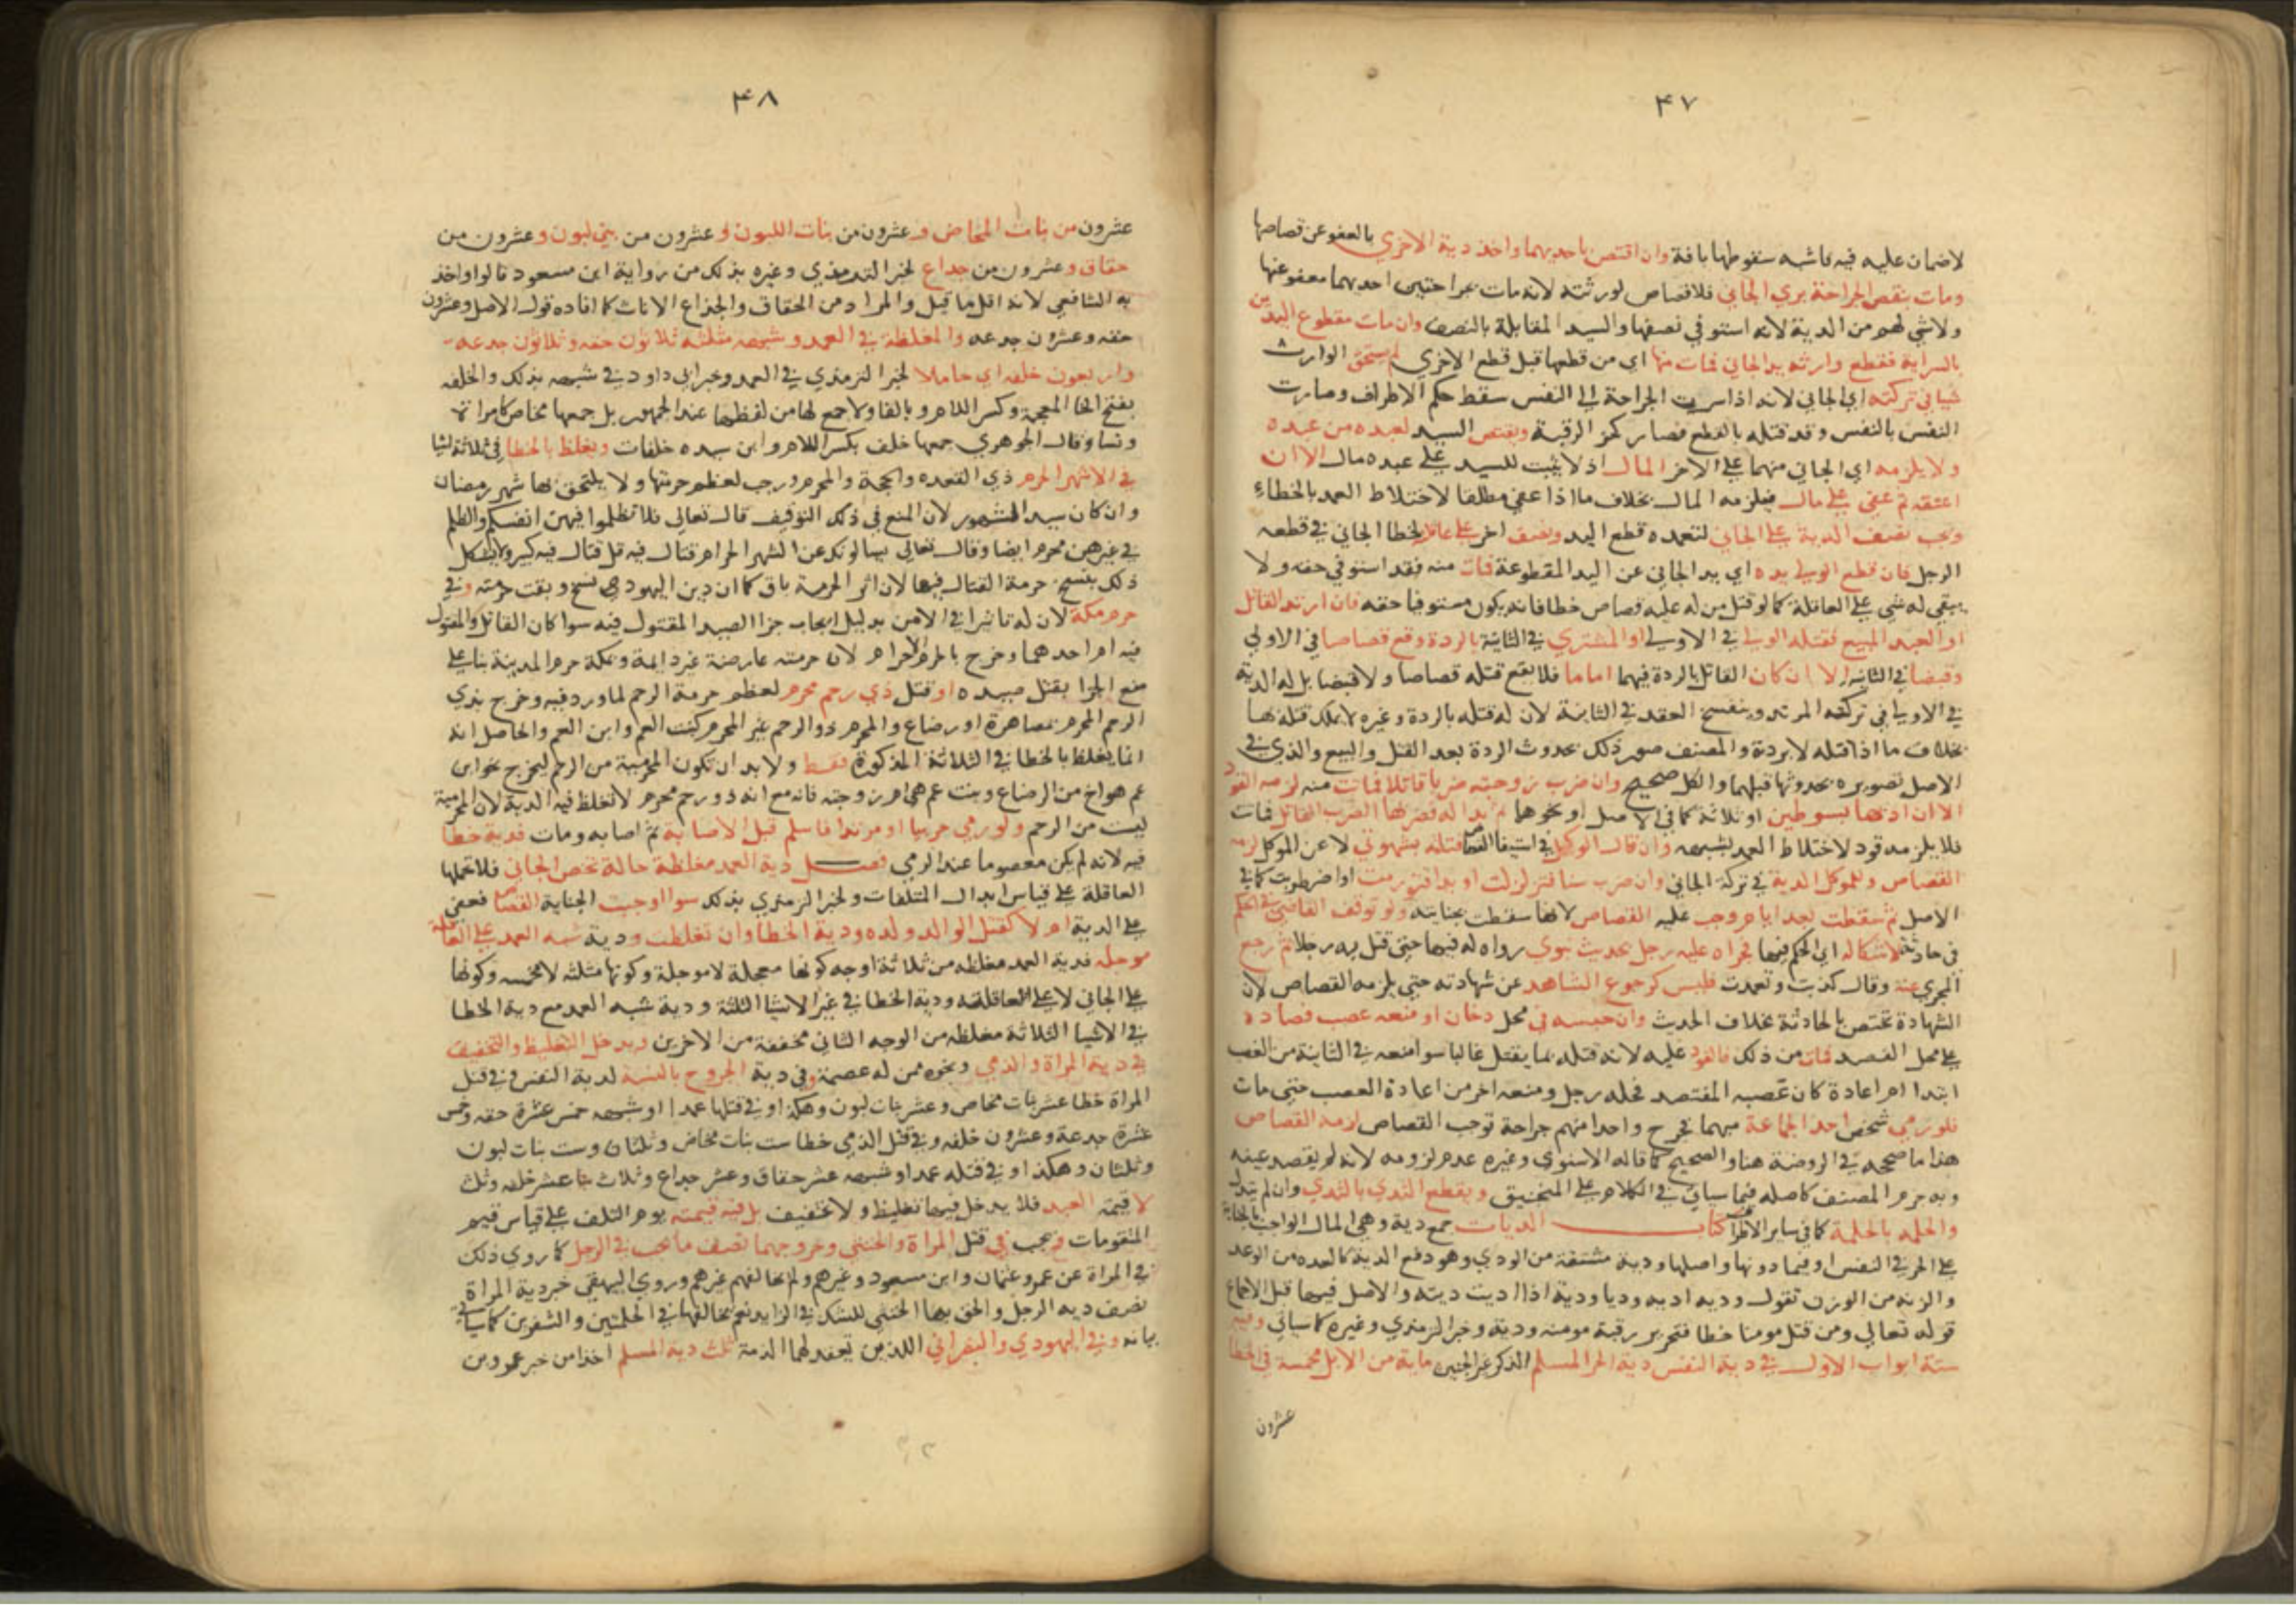 ٤٧
لاضمان عليه فيه فاشبه سقوطها بافة وان اقتص باحديهما واخذ دية الاخري بالعفو عن قصاصها
ومات بنقص الجراحة بري الجاني فلا قصاص لورثته لانه مات بجراحتين احديهما معفو عنها
ولا شي لهم من الدية لانه استوفي نصفها واليد المقابلة بالنصف وان مات مقطوع اليدين
بالسراية فقطع وارثه يد الجاني فمات منها اي من قطعها قبل قطع الاخري لم يستحق الوارث
شيا في تركته اي الجاني لانه اذا سرت الجراحة الي النفس سقط حكم الاطراف وصارت
النفس بالنفس وقد قتله بالقطع فصار كحز الرقبة ويقتص السيد لعبده من عبده
ولا يلزمه اي الجاني منهما علي الاخر المال اذ لا يثبت للسيد علي عبده مال الا ان
اعتقه ثم عفي علي مال فيلزمه المال بخلاف ما اذا عفي مطلقا لاختلاط العمد بالخطاء
وتجب نصف الدية علي الجاني لتعمده قطع اليد ونصف اخر علي عاقلته لخطا الجاني في قطعه
الرجل فان قطع الولي يده اي يد الجاني عن اليد المقطوعة فمات منه فقد استوفي حقه ولا
يبقي له شي علي العاقلة كما لو قتل من له عليه قصاص خطا فانه يكون مستوفيا حقه فان ارتد القاتل
او العبد المبيع فقتله الولي في الاولي او المشتري في الثانية بالردة وقع قصاصا في الاولي
وقبضا في الثانية الا ان كان القاتل بالردة فيهما اماما فلا يقع قتله قصاصا ولا قبضا بل له الدية
في الاولي في تركة المرتد وينفسخ العقد في الثانية لان له قتله بالردة وغيره لا يملك قتله بها
بخلاف ما اذا قتله لا بردة والمصنف صور ذلك بحدوث الردة بعد القتل والبيع والذي في
الاصل تصويره بحدوثها قبلهما والكل صحيح وان ضرب زوجته ضربا قاتلا فماتت منه لزمه القود
الا ان ادبها بسوطين او ثلاثة كما في الاصل او نحوهما ثم بدا له فضربها الضرب القاتل فماتت
فلا يلزمه قود لاختلاط العمد بشبهه وان قال الوكيل في استيفا القصاص قتلته بشهوتي لا عن الموكل لزمه
القصاص وللموكل الدية في تركة الجاني وان ضرب سنا فتزلزلت او يدا فتورمت او اضطربت كما في
الاصل ثم سقطت بعد ايام وجب عليه القصاص لانها سقطت بجنايته ولو توقف القاضي في الحكم
في حادثة لاشكاله اي الحكم فيها فجراه عليه رجل بحديث نبوي رواه له فيها حتي قتل به رجلا ثم رجع
المجري عنه وقال كذبت وتعمدت فليس كرجوع الشاهد عن شهادته حتي يلزمه القصاص لان
الشهادة تختص بالحادثة بخلاف الحديث وان حبسه في محل دخان او منعه عصب فصاده
علي محل الفصد فمات من ذلك فالقود عليه لانه قتله بما يقتل غالبا سوا منعه في الثانية من العصب
ابتدا ام اعادة كان عصبه المفتصد فحله رجل ومنعه اخر من اعادة العصب حتي مات
فلو رمي شخص احد الجماعة مبهما فجرح واحدا منهم جراحة توجب القصاص لزمه القصاص
هذا ما صححه في الروضة هنا والصحيح كما قاله الاسنوي وغيره عدم لزومه لانه لم يقصد عينه
وبه جزم المصنف كاصله فيما سياتي في الكلام علي المنجنيق ويقطع الثدي بالثدي وان لم يتدل
والحلمة بالحلمة كما في ساير الاطراف كتاب الديات جمع دية وهي المال الواجب بالجناية
علي الحر في النفس او فيما دونها واصلها ودية مشتقة من الودي وهو دفع الدية كالعدة من الوعد
والزنه من الوزن تقول وديه اديه وديا ودية اذا اديت ديته والاصل فيها قبل الاجماع
قوله تعالي ومن قتل مومنا خطا فتحرير رقبة مومنة ودية وخبر الترمذي وغيره كما سياتي وفيه
ستة ابواب الاول في دية النفس دية الحر المسلم الذكر غير الجنين ماية من الابل مخمسة في الخطا
عشرون
٤٨
عشرون من بنات المخاض وعشرون من بنات اللبون وعشرون من بني لبون وعشرون من
حقاق وعشرون من جذاع لخبر الترمذي وغيره بذلك من رواية ابن مسعود قالوا واخذ
به الشافعي لانه اقل ما قيل والمراد من الحقاق والجذاع الاناث كما افاده قول الاصل وعشرون
حقه وعشرون جدعه والمغلظة في العمد وشبهه مثلثه ثلاثون حقه وثلاثون جدعه
واربعون خلفه اي حاملا لخبر الترمذي في العمد وخبر ابي داود في شبهه بذلك والخلفه
بفتح الخا المعجمة وكسر اللام وبالفا ولا جمع لها من لفظها عند الجمهور بل جمعها مخاض كامراة
ونسا وقال الجوهري جمعها خلف بكسر اللام وابن سيده خلفات ويغلظ بالخطا في ثلاثة اشيا
في الاشهر الحرم ذي القعده والحجة والمحرم ورجب لعظم حرمتها ولا يلتحق بها شهر رمضان
وان كان سيد الشهور لان المتبع في ذلك التوقيف قال تعالي فلا تظلموا فيهن انفسكم والظلم
في غيرهن محرم ايضا وقال تعالي يسالونك عن الشهر الحرام قتال فيه قل قتال فيه كبير ولا يشكل
ذلك بنسخ حرمة القتال فيها لان اثر الحرمة باق كما ان دين اليهود نسخ وبقت حرمته وفي
حرم مكة لان له تاثيرا في الامن بدليل ايجاب جزا الصيد المقتول فيه سوا كان القاتل والمقتول
فيه ام احدهما وخرج بالحرم الاحرام لان حرمته عارضة غير دايمة وبمكة حرم المدينة بنا علي
منع الجزا بقتل صيده او قتل ذي رحم محرم لعظم حرمة الرحم لما ورد فيه وخرج بذي
الرحم المحرم بمصاهرة او رضاع والمحرم ذو الرحم غير المحرم كبنت العم وابن العم والحاصل انه
انما يغلظ بالخطا في الثلاثة المذكورة فقط ولا بد ان تكون المحرمية من الرحم ليخرج نحو ابن
عم هو اخ من الرضاع وبنت عم هي ام زوجته فانه مع انه ذو رحم محرم لا تغلظ فيه الدية لان المحرمية
ليست من الرحم ولو رمي حربيا او مرتدا فاسلم قبل الاصابة ثم اصابه ومات فدية خطا
فيه لانه لم يكن معصوما عند الرمي فصل دية العمد مغلظة حالة تخص الجاني فلا تحملها
العاقلة علي قياس ابدال المتلفات ولخبر الترمذي بذلك سوا اوجبت الجناية القصاص فعفي
علي الدية ام لا كقتل الوالد ولده ودية الخطا وان تغلظت ودية شبه العمد علي العاقلة
موجله فدية العمد مغلظه من ثلاثة اوجه كونها معجلة لا موجلة وكونها مثلثه لا مخمسه وكونها
علي الجاني لا علي العاقلة ودية الخطا في غير الاشيا الثلثة ودية شبه العمد مع دية الخطا
في الاشيا الثلاثة مغلظه من الوجه الثاني مخففة من الاخرين ويدخل التغليظ والتخفيف
في دية المراة والذمي ونحوه ممن له عصمة وفي دية الجروح بالنسبة لدية النفس ففي قتل
المراة خطا عشر بنات مخاص وعشر بنات لبون وهكذا وفي قتلها عمدا او شبهه خمس عشرة حقه وخمس
عشرة جدعة وعشرون خلفه وفي قتل الذمي خطا ست بنات مخاض وثلثان وست بنات لبون
وثلثان وهكذا وفي قتله عمدا او شبهه عشر حقاق وعشر جذاع وثلاث عشر خلفه وثلث
لا قيمة العبد فلا يدخل فيها تغليظ ولا تخفيف بل فيه قيمته يوم التلف علي قياس قيم
المتقومات ويجب في قتل المراة والخنثي وجروحهما نصف ما يجب في الرجل كما روي ذلك
في المراة عن عمر وعثمان وابن مسعود وغيرهم ولم يخالفهم غيرهم وروي البيهقي خبر دية المراة
نصف دية الرجل والحق بها الخنثي للشك في الزايد نعم يخالفها في الحلمتين والشفرين كما سياتي
بيانه وفي اليهودي والنصراني اللذين تعقد لهما الذمة ثلث دية المسلم اخذا من خبر عمرو بن